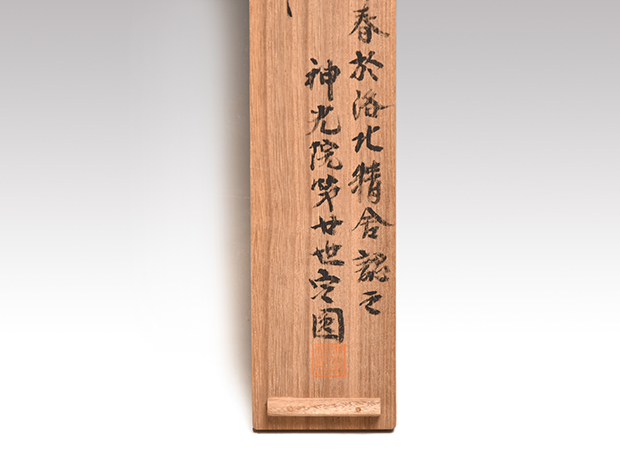 春於洛北精舎誌之
神光院第廿世定圓